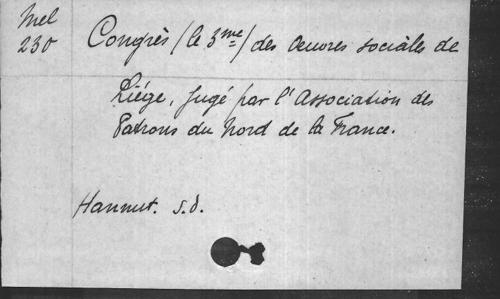 Mel
230
Congrès (le 3me) des Oeuvres sociales de
Liége, jugé par l'Association des
Patrons du Nord de la France.
Hannut. s.d.